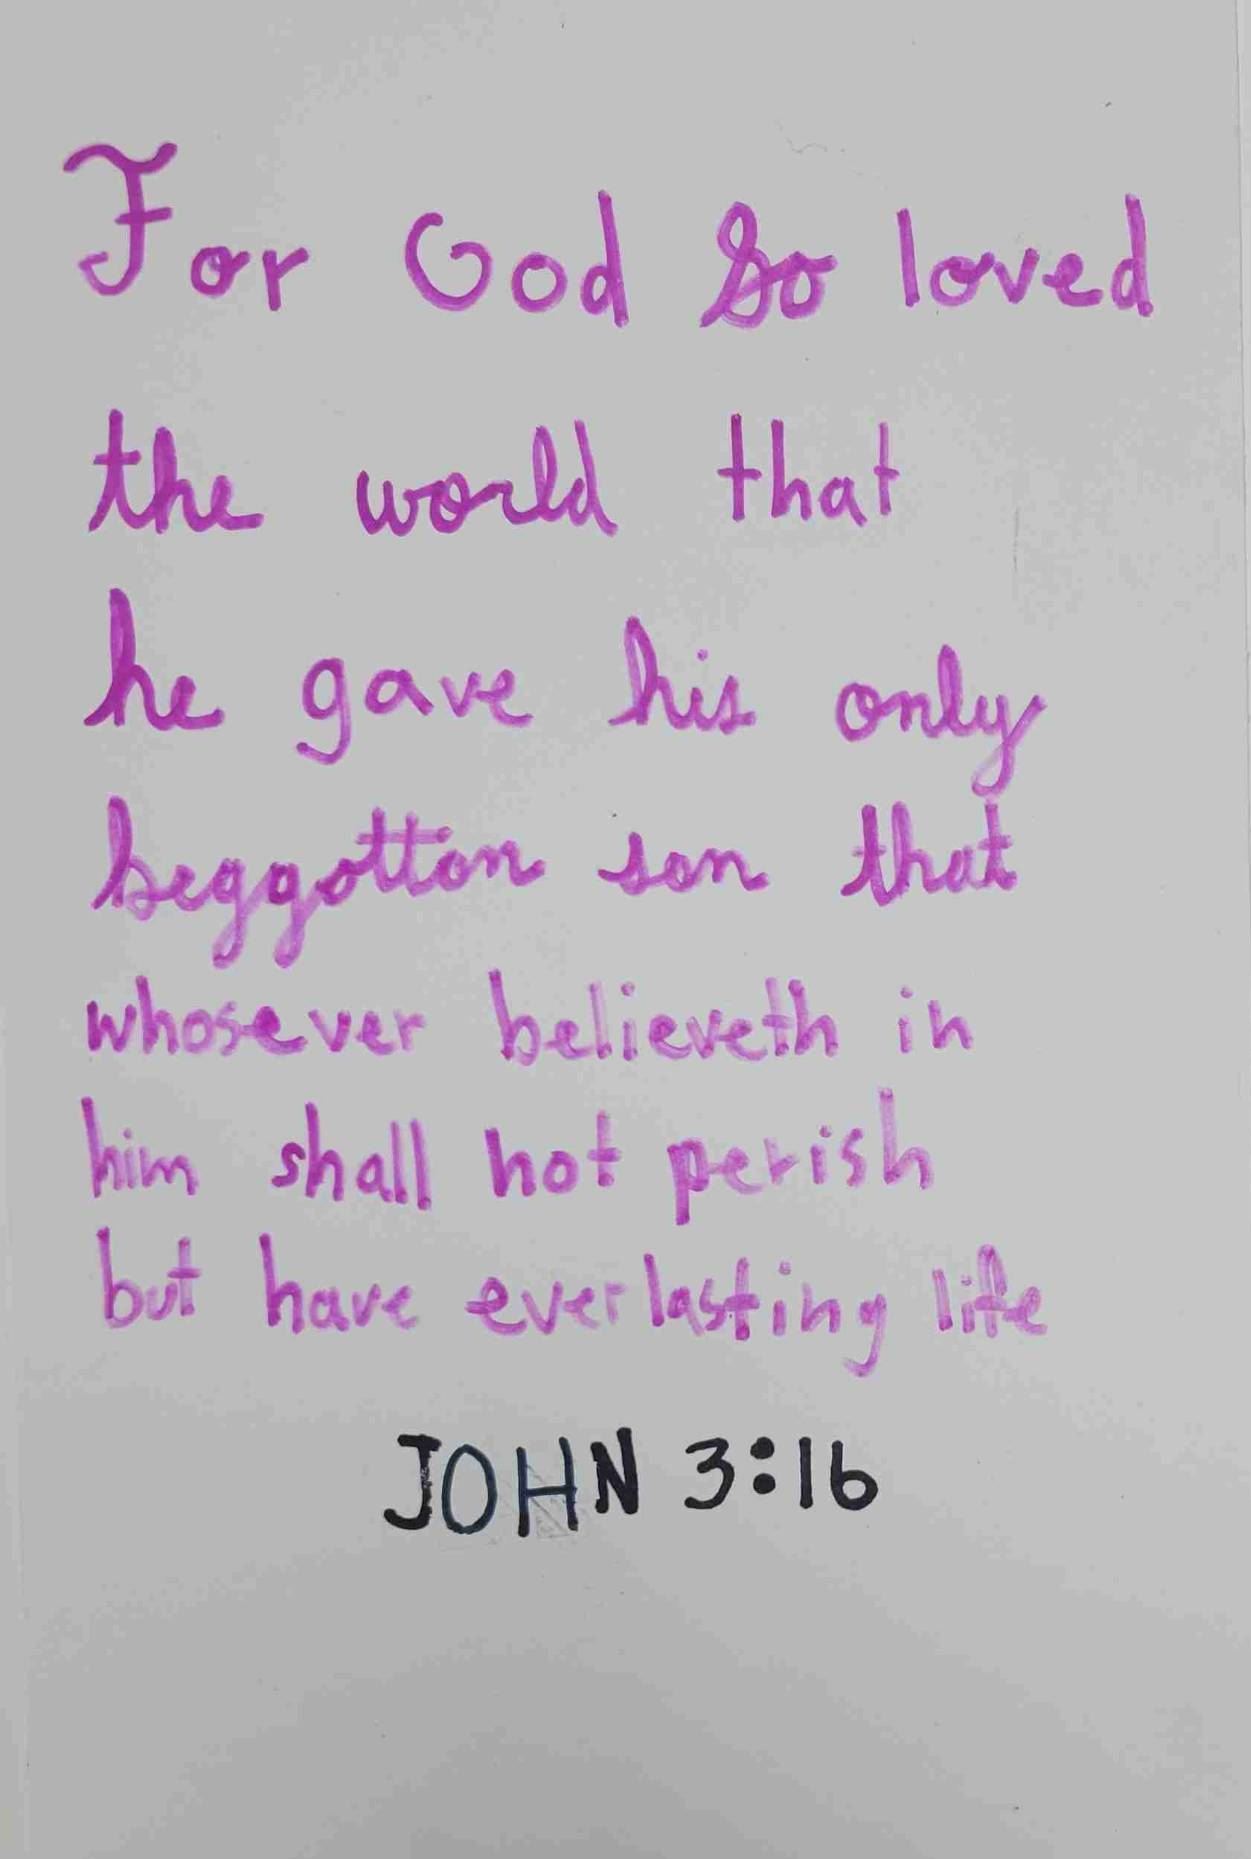 For God So loved
the world that
he gave his only
beggotton son that
whosever believeth in
him shall not perish
but have everlasting life
JOHN 3:16